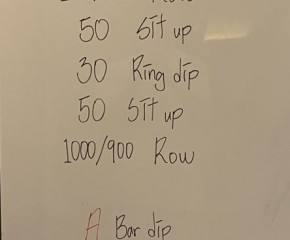 50 Sit up
30 Ring dip
50 Sit up
1000/900 Row
A Bar dip